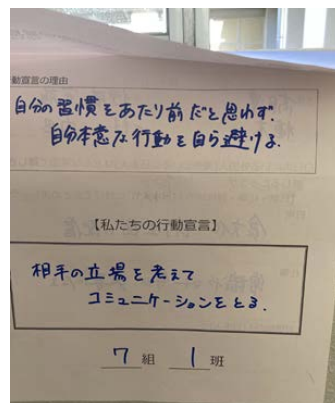 動宣言の理由
自分の習慣をあたり前だと思わず、
自分本意な行動を自ら避ける.
【私たちの行動宣言】
相手の立場を考えて
コミュニケーションをとる.
7 組 1 班